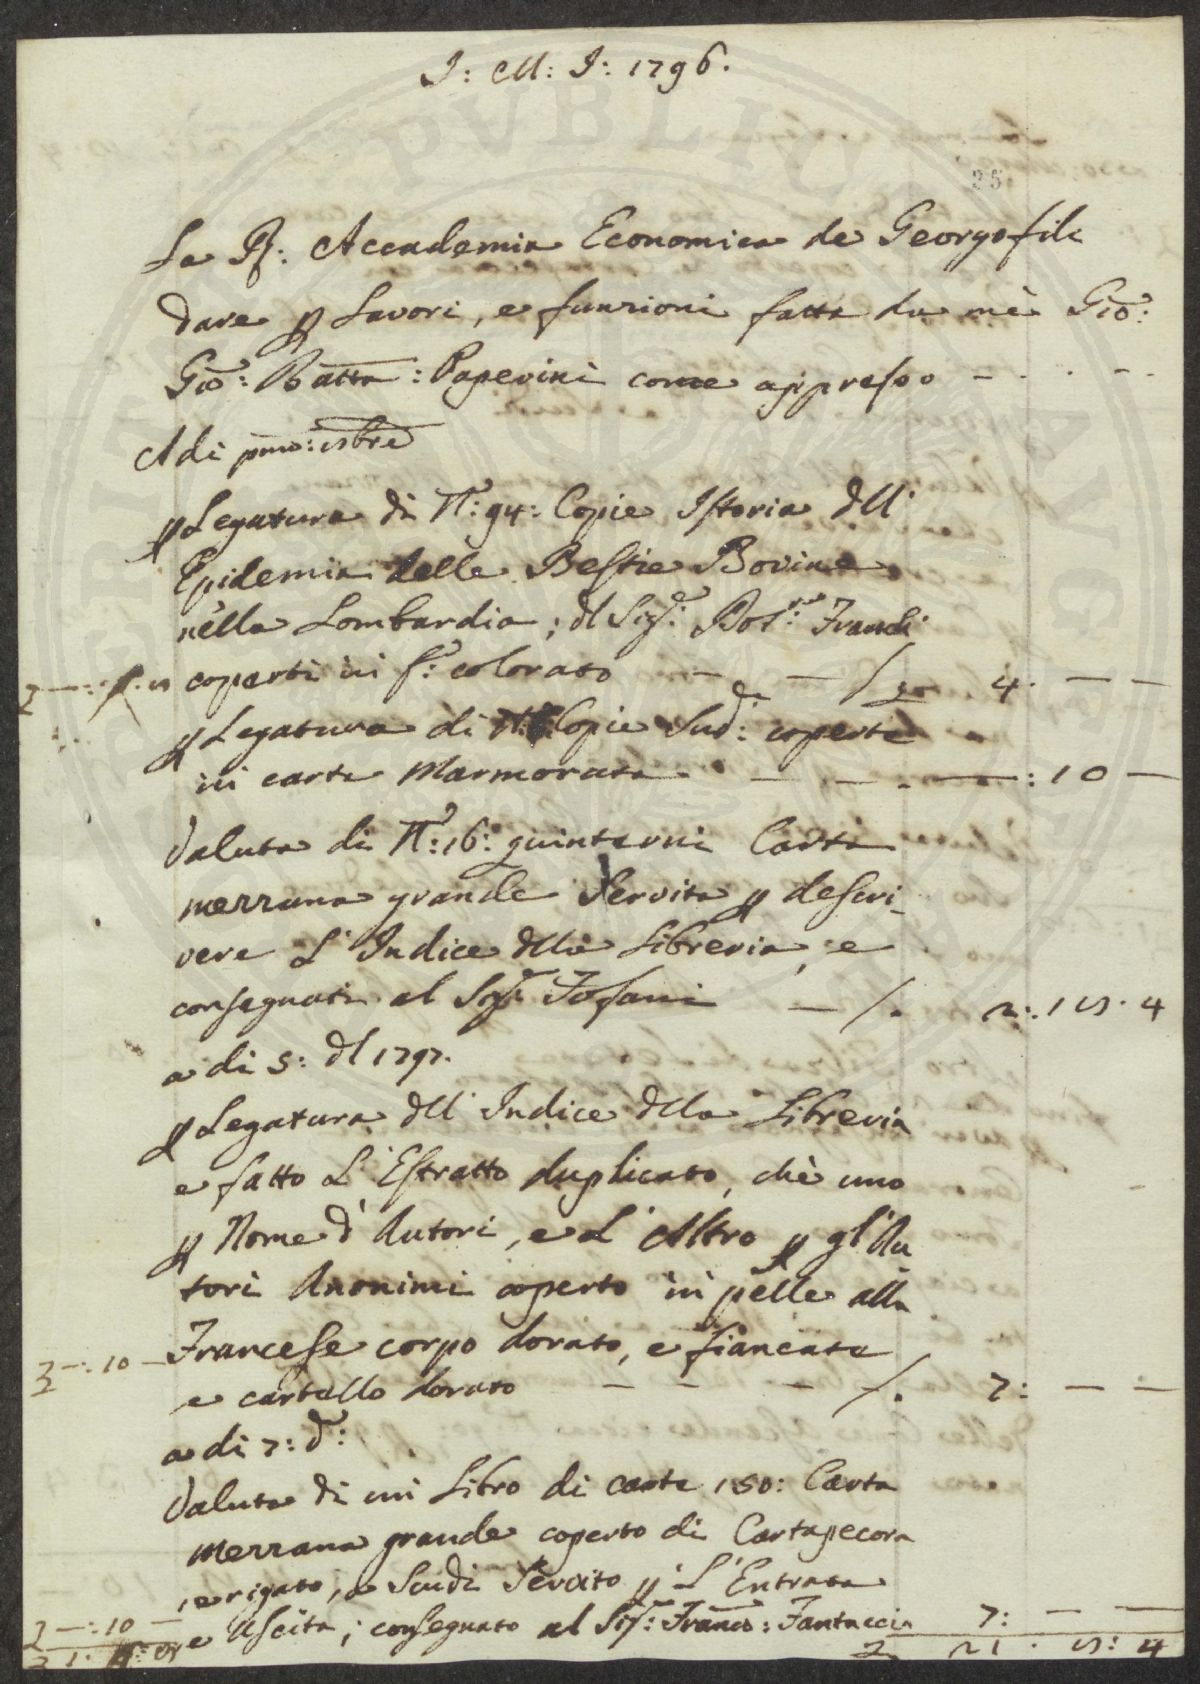 J: M: J: 1796.
25
La R: Accademia Economica de Georgofili
dare p Lavori, e funzioni fatte da mè Gio:
Gio: Batta: Paperini come appresso
Adi pmo: 9bre
p Legatura di N: 94: Copie Istoria dll'
Epidemia delle Bestie Bovine
nella Lombardia; dl Sigre: Dotre:
coperti in f: colorato — — /. 4. — —
p Legatura di N: Copie Sudde: coperte
in carta Marmorata — — — : 10 —
Valuta di N: 16: quinterni Carta
mezzana grande Servita p descri-
vere L' Indice dlla Libreria, e
consegnati al Sigr: Tofani — /. 2: 15. 4
a di 5: dl 1797.
p Legatura dll' Indice dlla Libreria
e fatto L' Estratto duplicato, chè uno
p Nome d' Autori, e L' Altro p gl' Au
tori Anonimi coperto in pelle alla
Francese corpo dorato, e fiancate
— : 10 —
e cartello dorato — — — /. 7: — —
a di 7: do:
Valuta di un Libro di carte 150: Carta
mezzana grande coperto di Cartapecora
e rigato, a Scudi Servito p L' Entrata
— : 10 —
e Uscita; consegnato al Sigr: Franco: Fantacci 7: — —
21. 5: 4